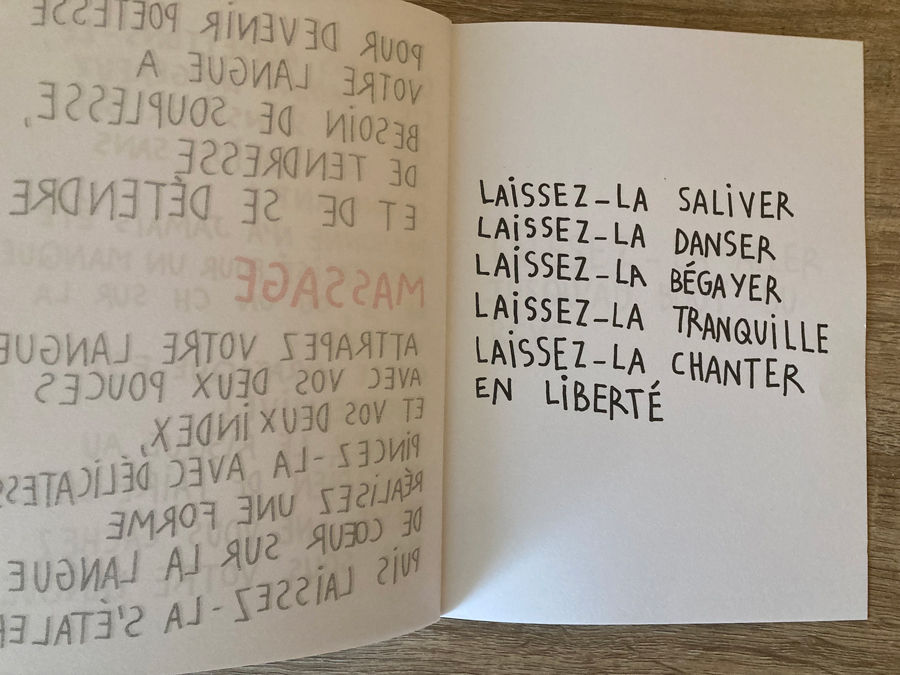 POUR DEVENIR POÉTESSE
VOTRE LANGUE A
BESOIN DE SOUPLESSE,
DE TENDRESSE
ET DE SE DÉTENDRE
MASSAGE
ATTRAPEZ VOTRE LANGUE
AVEC VOS DEUX POUCES
ET VOS DEUX INDEX,
PINCEZ-LA AVEC
RÉALISEZ UNE FORME
DE CŒUR SUR LA LANGUE
PUIS LAISSEZ-LA
LAISSEZ-LA SALIVER
LAISSEZ-LA DANSER
LAISSEZ-LA BÉGAYER
LAISSEZ-LA TRANQUILLE
LAISSEZ-LA CHANTER
EN LIBERTÉ